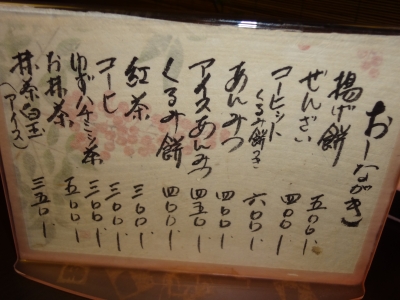 おしながき
揚げ餅 五〇〇、
ぜんざい 四〇〇、
コーヒセット くるみ餅つき 六〇〇、
あんみつ 四〇〇、
アイスあんみつ 四五〇、
くるみ餅 四〇〇、
紅茶 三〇〇、
コーヒ 三〇〇、
ゆずハチミツ茶 三〇〇、
お抹茶 五〇〇、
抹茶白玉(アイス) 三五〇、